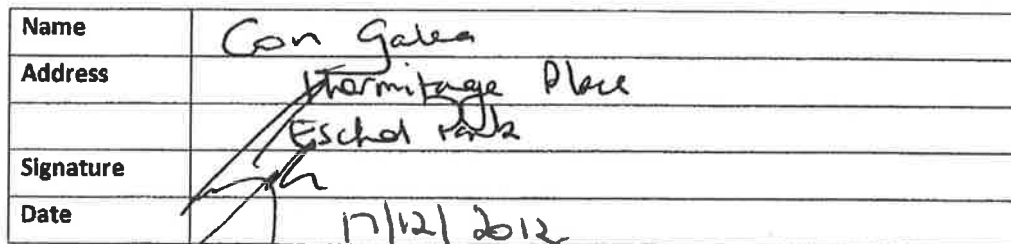 Name Con Galea
Address Hermitage Place
Eschol Park
Signature
Date 17/12/2012